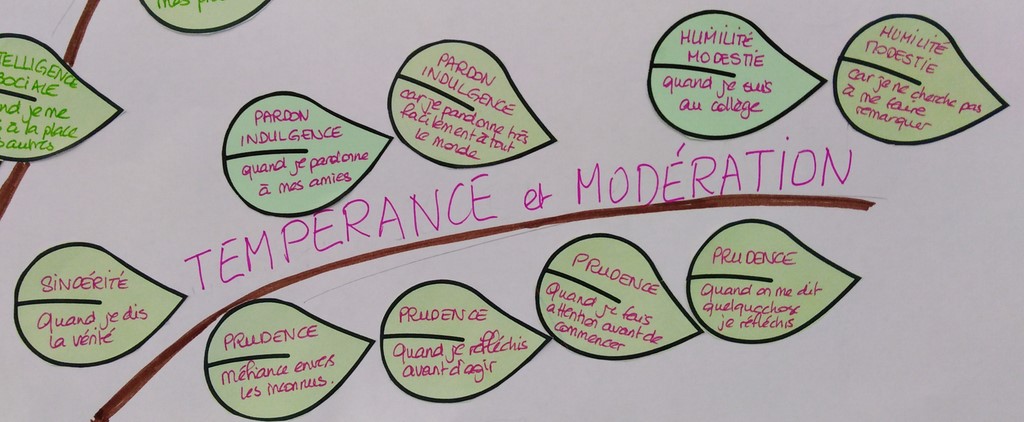 mes pr
TELLIGENCE
SOCIALE
nd je me
à la place
autres
PARDON
INDULGENCE
quand je pardonne
à mes amies
PARDON
INDULGENCE
car je pardonne très
facilement à tout
le monde
HUMILITÉ
MODESTIE
quand je suis
au collège
HUMILITÉ
MODESTIE
car je ne cherche pas
à me faire
remarquer
TEMPERANCE et MODÉRATION
SINCÉRITÉ
Quand je dis
la vérité
PRUDENCE
méfiance envers
les inconnus.
PRUDENCE
Quand je réfléchis
avant d'agir
PRUDENCE
Quand je fais
attention avant de
commencer
PRUDENCE
Quand on me dit
quelquechose
je réfléchis